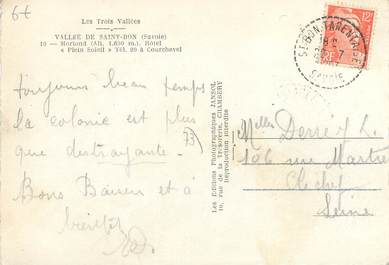 6f
Les Trois Vallées
VALLÉE DE SAINT-BON (Savoie)
10 — Moriond (Alt. 1.650 m.), Hôtel
« Plein Soleil » Tél. 29 à Courchevel
ST-BON-TARENTAISE
Savoie
12F
toujours beau temps
la colonie est plus
que distrayante.
Bons Baisers et à
bientôt
Les Editions Photographiques JANSOL
10, rue de la Trésorerie, CHAMBÉRY
Reproduction interdite
106 rue Martre
Clichy
Seine